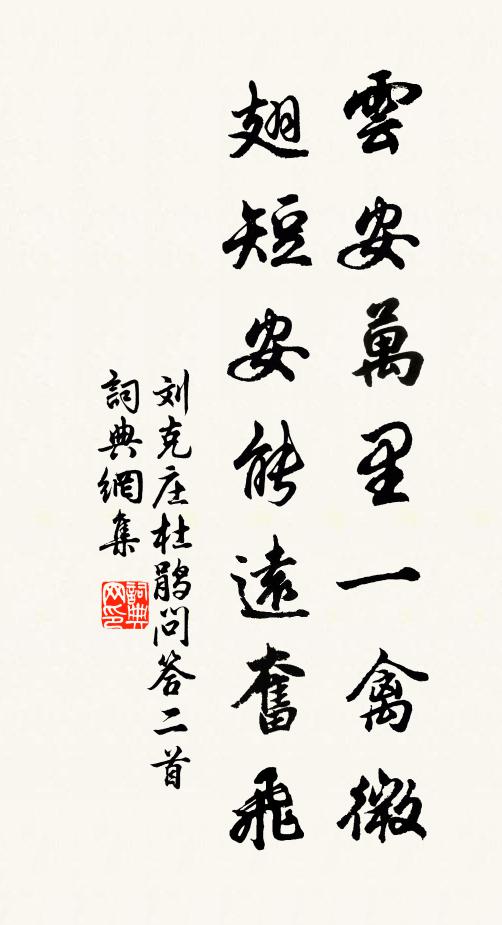 雲安萬里一禽微
翅短安能遠奮飛
刘克庄杜鹃問答二首
詞典網集
詞典網印